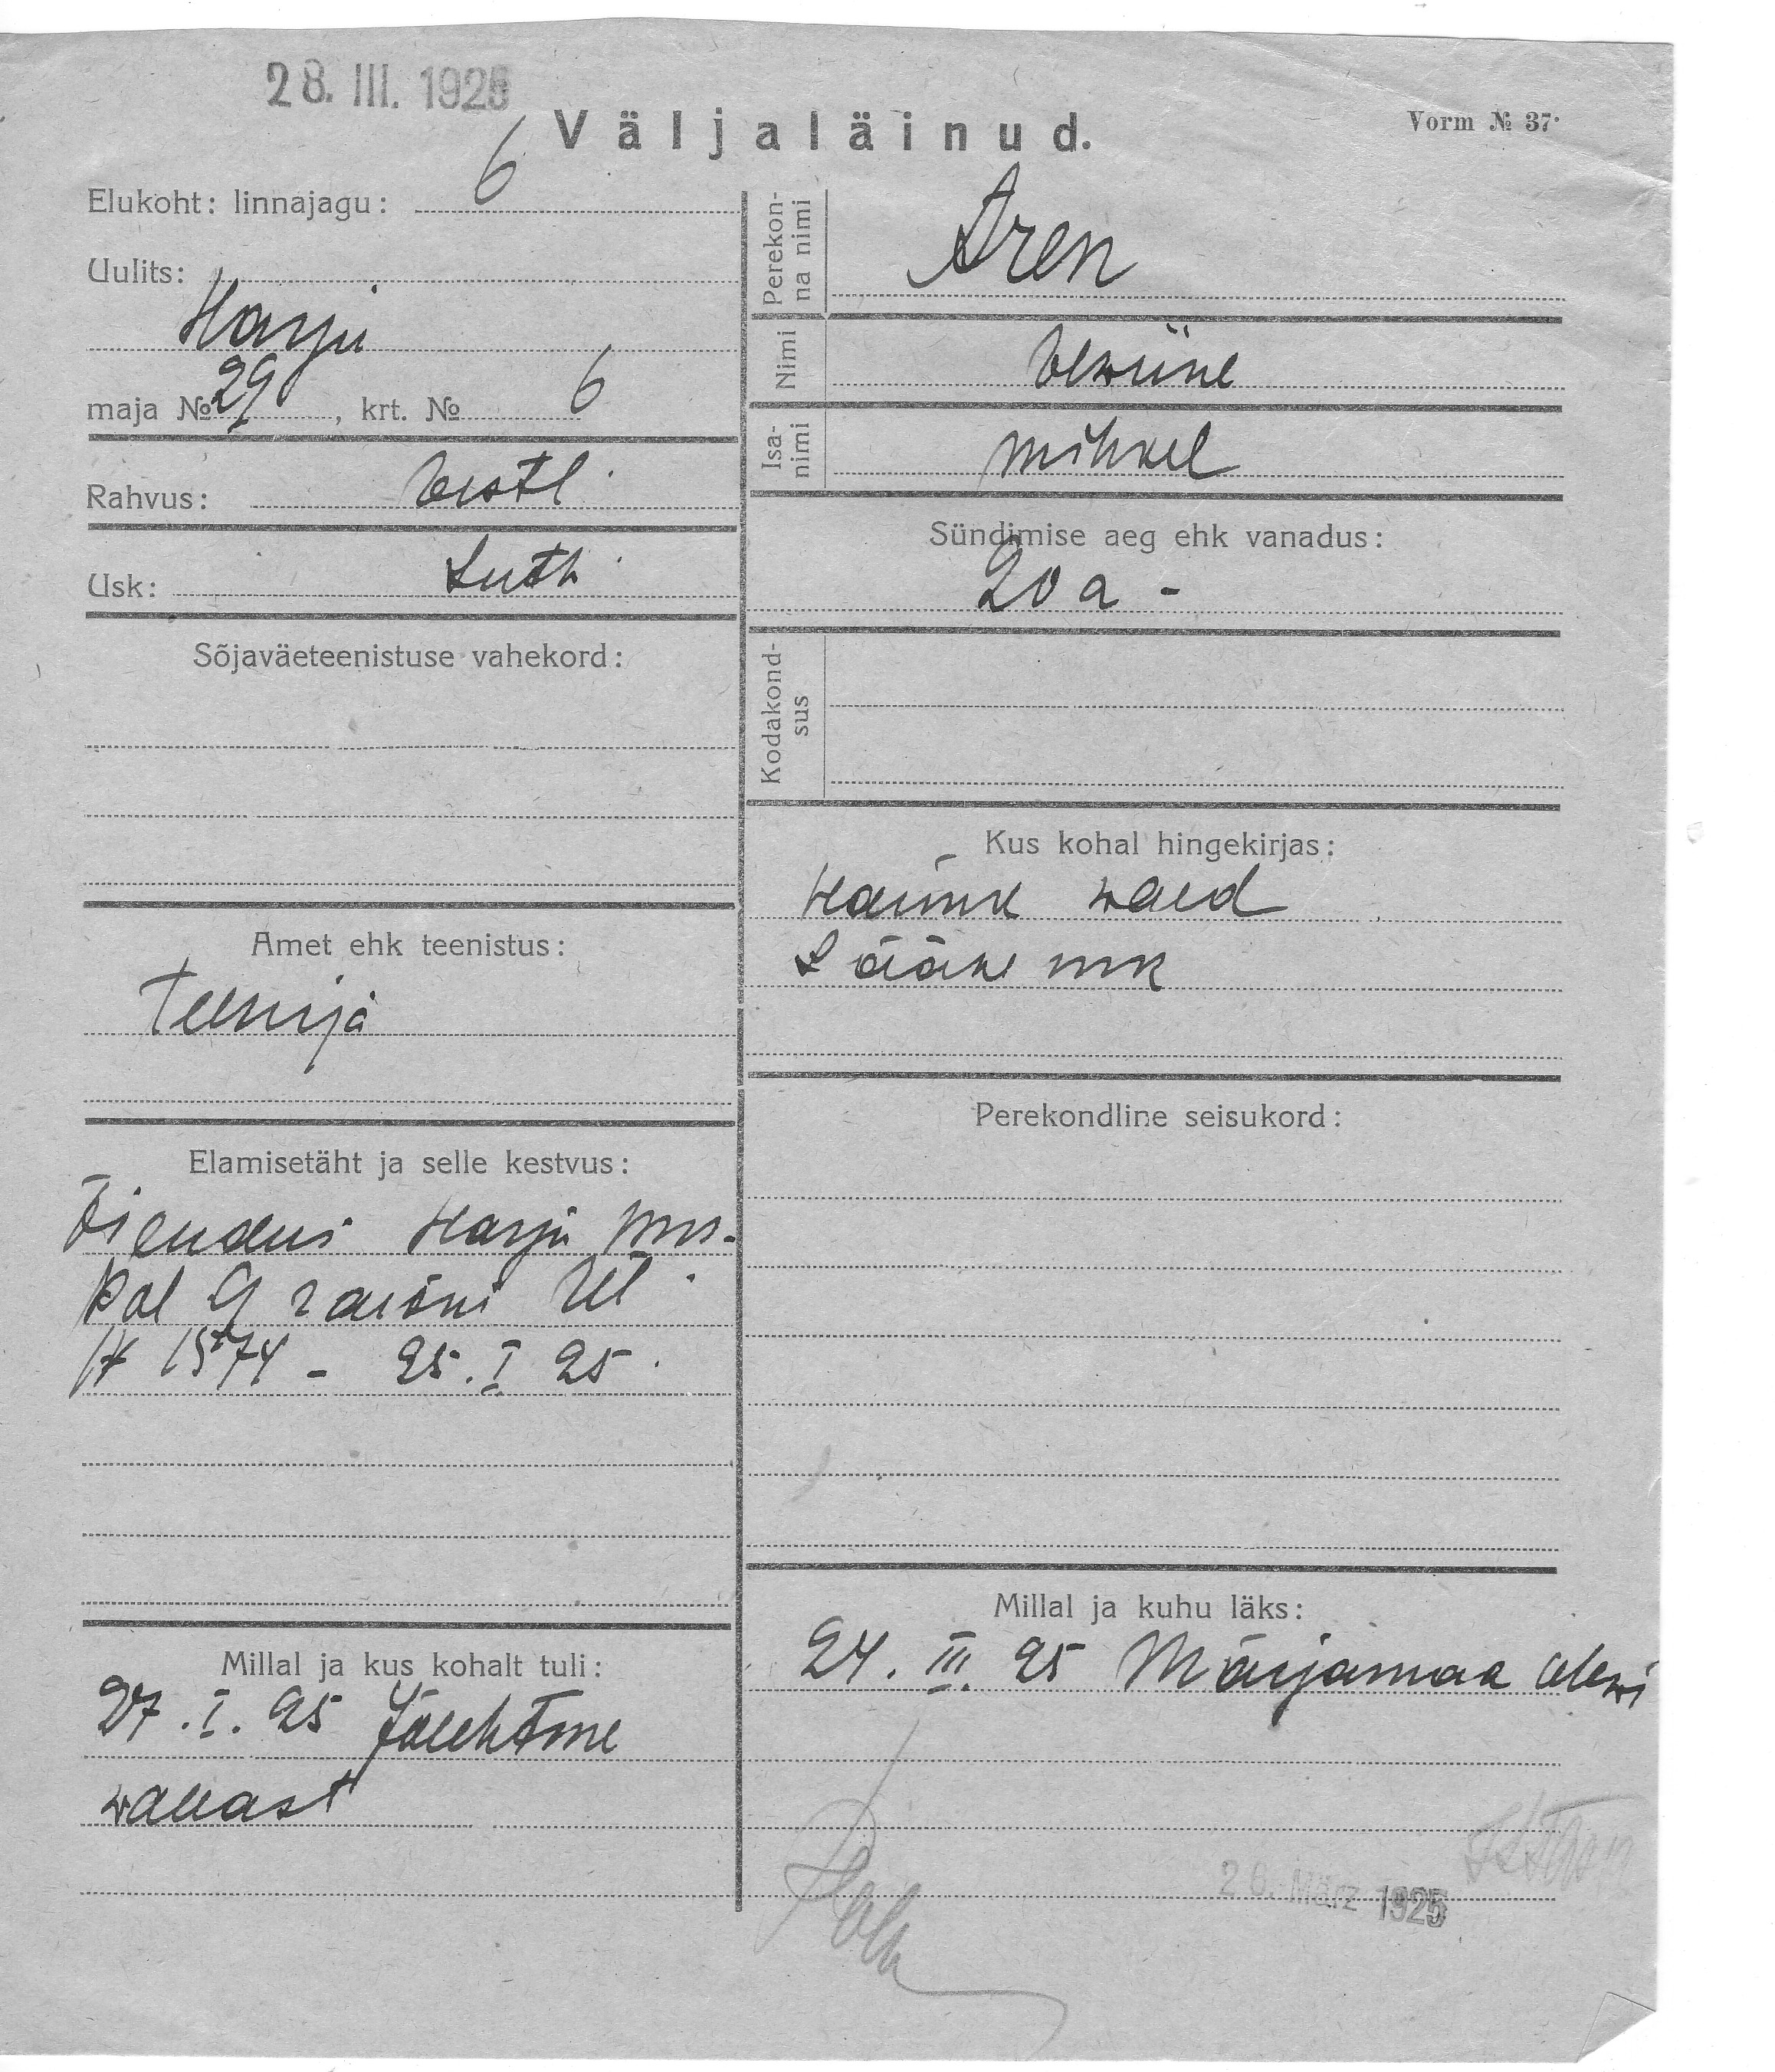 28. III. 1925
Väljaläinud.
Vorm № 37.
Elukoht: linnajagu: 6
Uulits:
Harju
maja № 29, krt. № 6
Rahvus: Eestl.
Usk: Luth.
Sõjaväeteenistuse vahekord:
Amet ehk teenistus:
Teenija
Elamisetäht ja selle kestvus:
Õiendus Harju mk.
Pol 9 raioni Ül.
№ 1574 - 25. I 25.
Millal ja kus kohalt tuli:
27. I. 25 Jõelehtme
wallast
Perekon-
na nimi
Aren
Nimi
Isa-
nimi
Mihkel
Sündimise aeg ehk vanadus:
20 a -
Kodakond-
sus
Kus kohal hingekirjas:
wald
Lääne mk
Perekondline seisukord:
Millal ja kuhu läks:
24. III. 25 Märjamaa alewi
26. März 1925